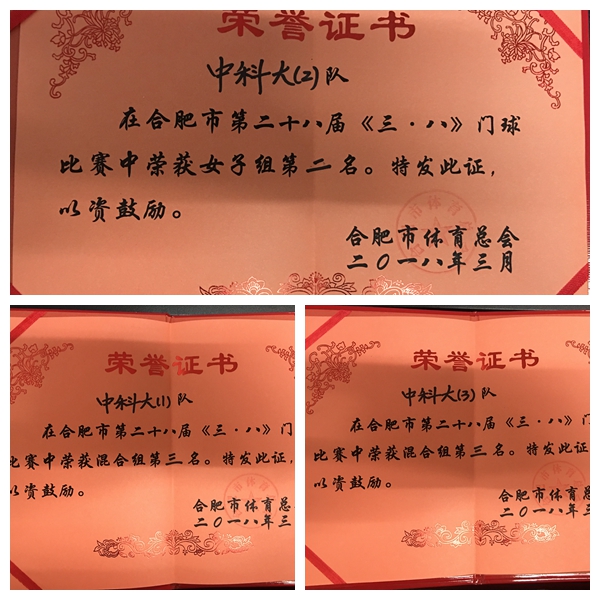 荣誉证书
中科大(2)队
在合肥市第二十八届《三·八》门球
比赛中荣获女子组第二名。特发此证，
以资鼓励。
合肥市体育总会
二〇一八年三月
荣誉证书
中科大(1)队
在合肥市第二十八届《三·八》门
比赛中荣获混合组第三名。特发此证，
以资鼓励。
合肥市体育总
二〇一八年三
荣誉证书
中科大(3)队
在合肥市第二十八届《三·八》门
比赛中荣获混合组第三名。特发此证
以资鼓励。
合肥市体育总
二〇一八年三